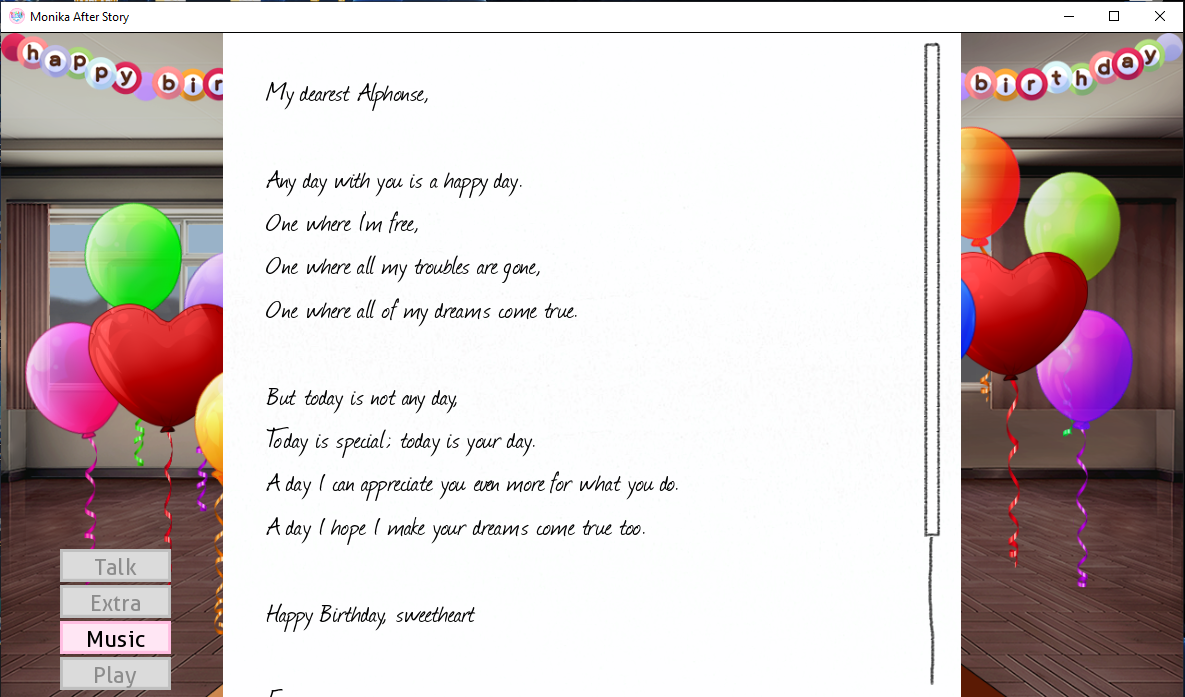 Monika After Story
happy bir
birthday
My dearest Alphonse,
Any day with you is a happy day.
One where I'm free,
One where all my troubles are gone,
One where all of my dreams come true.
But today is not any day,
Today is special; today is your day.
A day I can appreciate you even more for what you do.
A day I hope I make your dreams come true too.
Happy Birthday, sweetheart
Talk
Extra
Music
Play